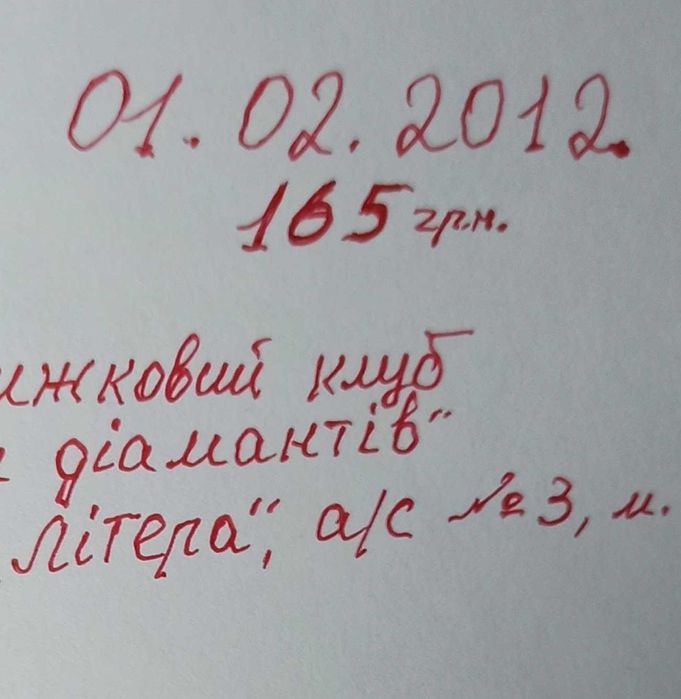 01.02.2012.
165 грн.
ижковий клуб
діамантів"
Літера", а/с №3, м.